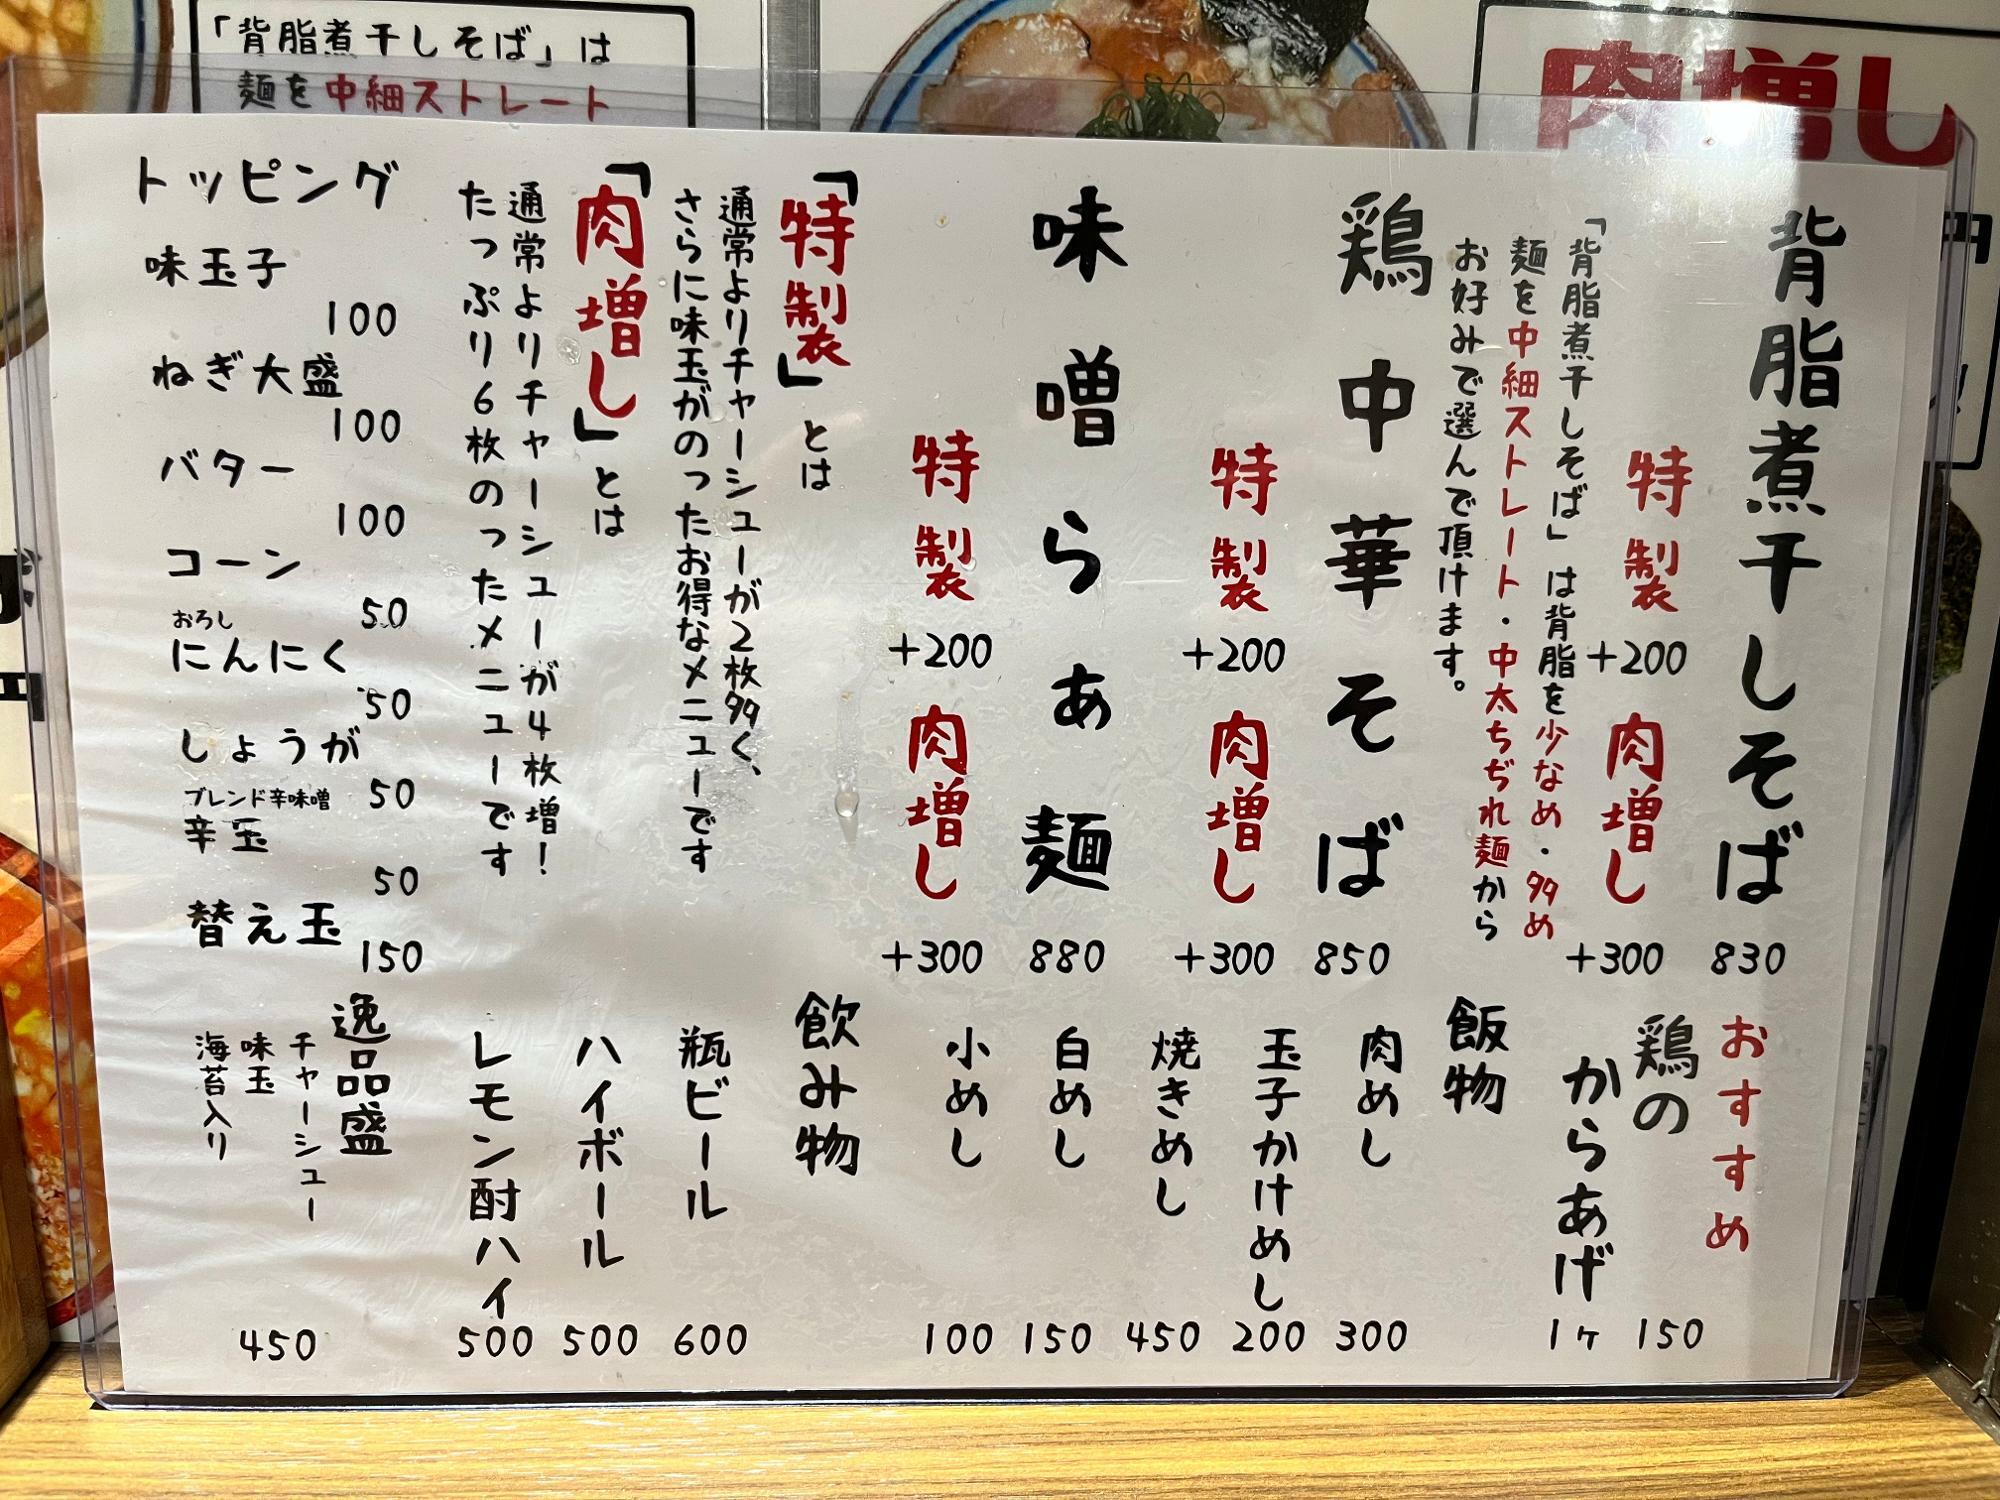 「背脂煮干しそば」は
麺を中細ストレート
肉増し
背脂煮干しそば 830
特製 +200 肉増し +300
「背脂煮干しそば」は背脂を少なめ・多め
麺を中細ストレート・中太ちぢれ麺から
お好みで選んで頂けます。
鶏中華そば 850
特製 +200 肉増し +300
味噌らぁ麺 880
特製 +200 肉増し +300
「特製」とは
通常よりチャーシューが2枚多く、
さらに味玉がのったお得なメニューです
「肉増し」とは
通常よりチャーシューが4枚増!
たっぷり6枚のったメニューです
トッピング
味玉子
100
ねぎ大盛
100
バター
100
コーン
50
おろし
にんにく
50
しょうが
50
ブレンド辛味噌
辛玉
50
替え玉
150
おすすめ
鶏の
からあげ
1ヶ 150
飯物
肉めし 300
玉子かけめし 200
焼きめし 450
白めし 150
小めし 100
飲み物
瓶ビール 600
ハイボール 500
レモン酎ハイ 500
逸品盛
チャーシュー
味玉
海苔入り
450